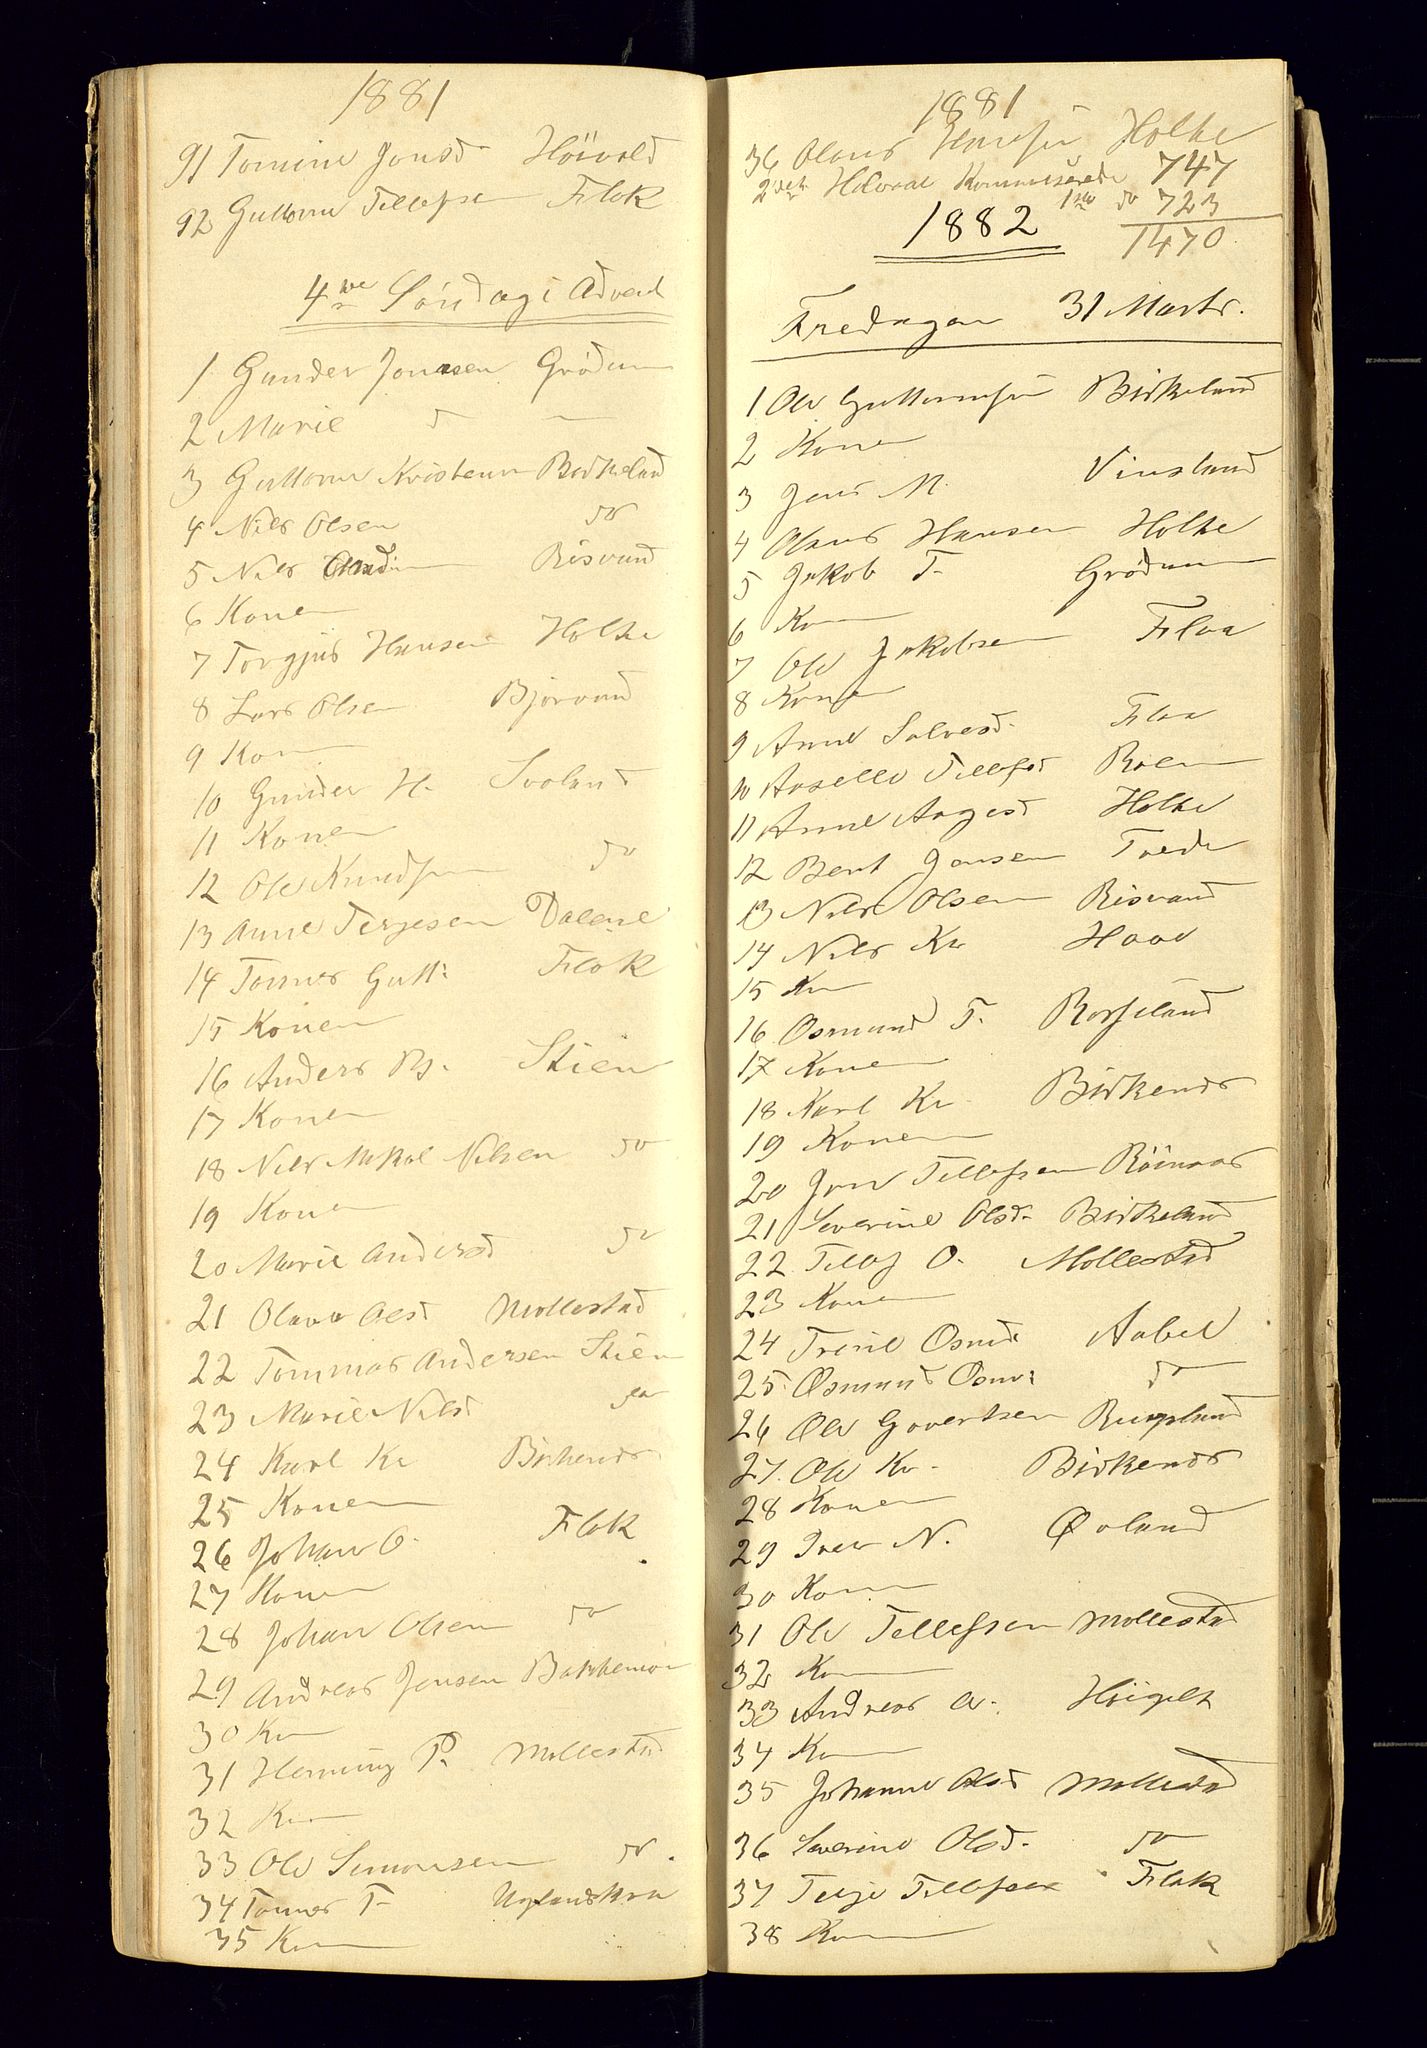 1881
91 Tomine Jonsd Höivold
92 Guttorm Tellefsen Flak
4de Söndag i Advent
1 Gunder Jonsen Grödum
2 Marie do —
3 Guttorm Kristensen Birkeland
4 Nils Olsen do
5 Nils Risvand
6 Konen
7 Torgjus Hansen Holte
8 Lars Olsen Bjorvand
9 Kon
10 Gunder H. Svaland
11 Konen
12 Ole Knudsen do
13 Anne Terjesen Dalene
14 Tomas Gutt: Flak
15 Konen
16 Anders By. Stien
17 Konen
18 Nils Mikal Nilsen do
19 Konen
20 Marie Andersd do
21 Olava Olsd Mollestad
22 Tommas Andersen Stien
23 Marie Nilsd do
24 Karl Kr Birkenes
25 Konen
26 Johan O. Flak
27 Konen
28 Johan Olsen do
29 Andreas Jensen Bakkemoen
30 Kon
31 Henning P. Mollestad
32 Kon
33 Ole Simonsen do.
34 Tomas T. Uglandskra
35 Kon
1881
36 Olaus Hansen Holte
2det Halvaar Kommuserede 747
1ste do 723
1470
1882
Fredagen 31 Marts.
1 Ole Guttormsen Birkeland
2 Konen
3 Jens M. Vinsland
4 Olaus Hansen Holte
5 Jakob T. Grödum
6 Kon
7 Ole Jakobsen Flaa
8 Konen
9 Anne Salvesd. Flaa
10 Aaselle Tellefsd Roen
11 Anne Aagesd Holte
12 Bent Jensen Tvede
13 Nils Olsen Risvand
14 Nils Kr Haave
15 Kon
16 Osmund T. Rosseland
17 Konen
18 Karl Kr. Birkenes
19 Konen
20 Jens Tellefsen Röinaas
21 Severine Olsd. Birkeland
22 Tellef O. Mollestad
23 Konen
24 Trine Osmd: Aabel
25 Osmund Osm: do
26 Ole Govertsen Rugsland
27. Ole Kr. Birkenes
28 Konen
29 Iver N. Øvland
30 Kon
31 Ole Tellefsen Mollestad
32 Kon
33 Andreas A. Höigilt
34 Kon
35 Johanne Olsd Mollestad
36 Severine Olsd. do
37 Terje Tellefsen Flak
38 Kon